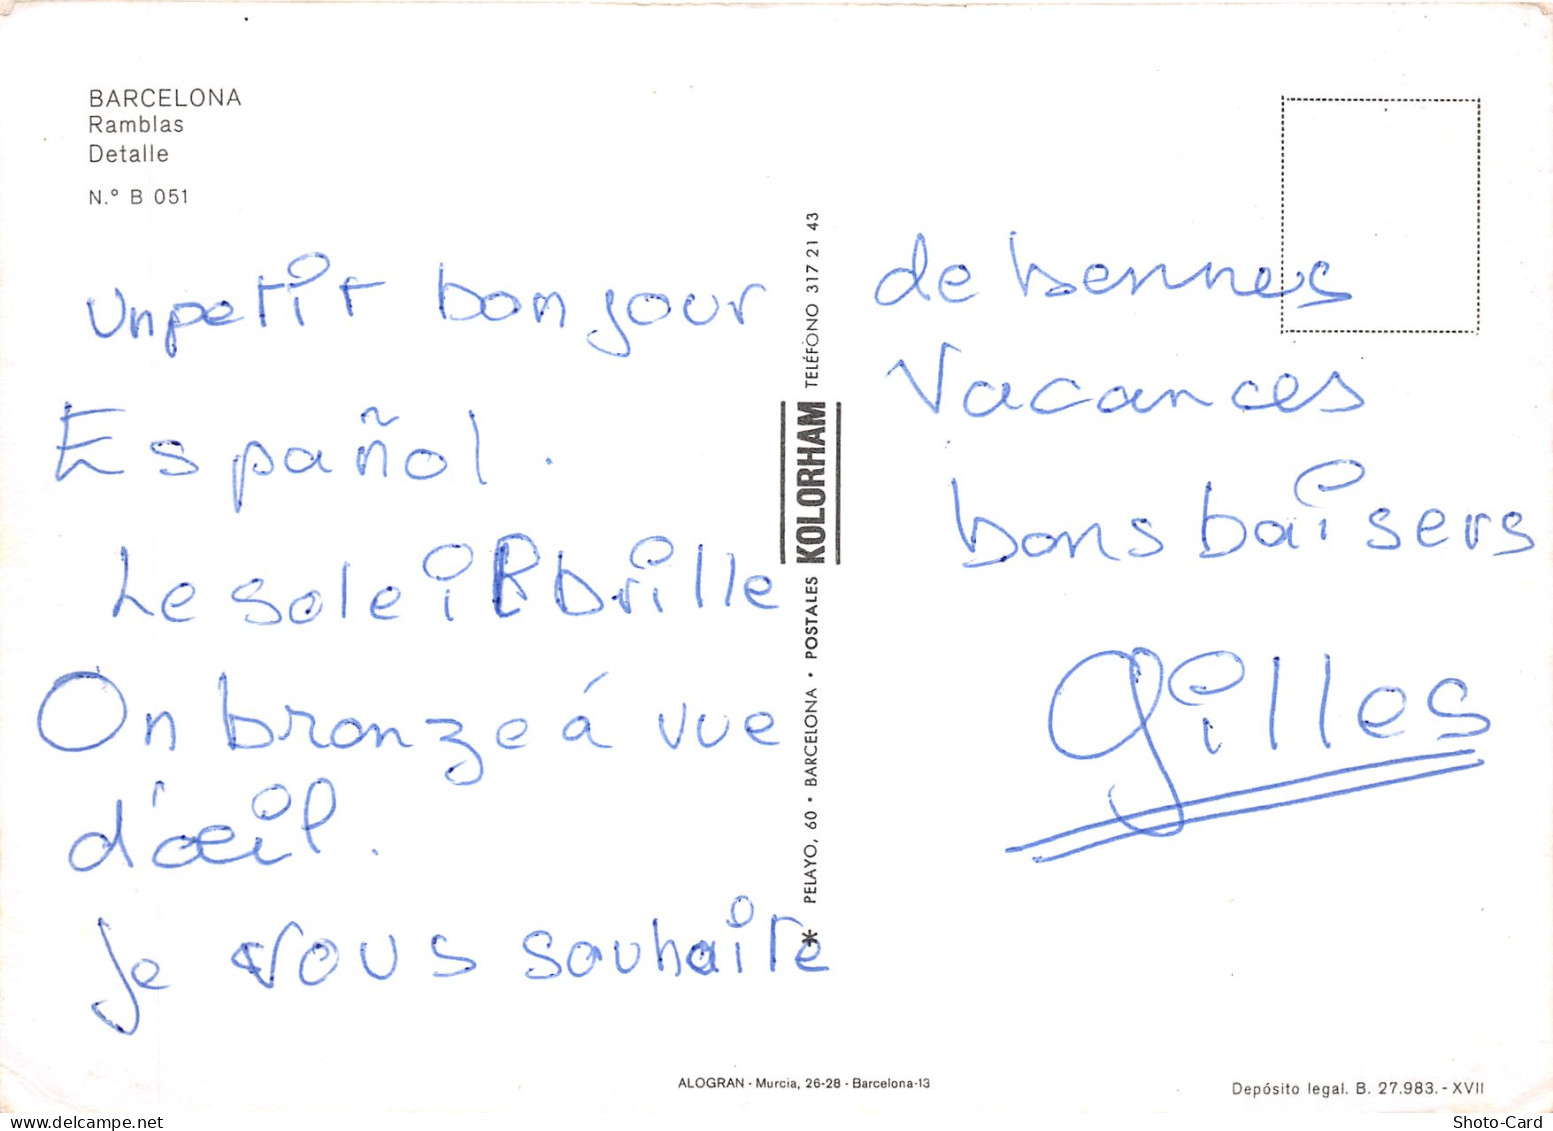 BARCELONA
Ramblas
Detalle
N.° B 051
un petit bonjour
Español.
Le soleil brille
On bronze á vue
d'œil.
je vous souhaite
de bonnes
vacances
bons baisers
Gilles
* PELAYO, 60 • BARCELONA • POSTALES KOLORHAM TELÉFONO 317 21 43
ALOGRAN - Murcia, 26-28 - Barcelona-13
Depósito legal. B. 27.983. - XVII
Shoto-Card